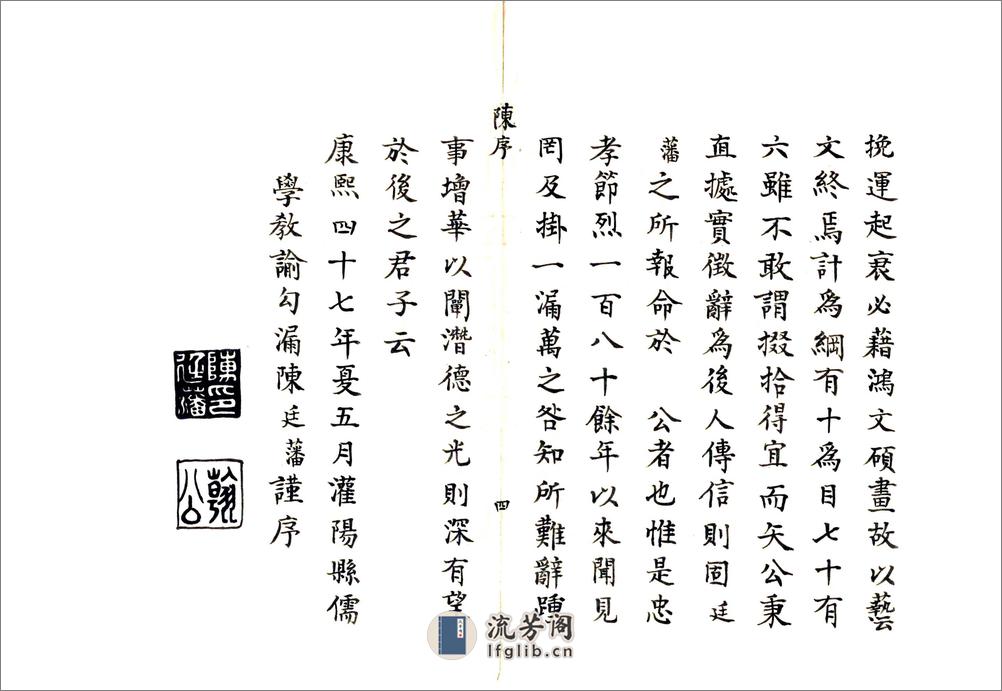 挽運起衰必藉鴻文碩畫故以藝
文終焉計爲綱有十爲目七十有
六雖不敢謂掇拾得宜而矢公秉
直據實徵辭爲後人傳信則固廷
藩之所報命於 公者也惟是忠
孝節烈一百八十餘年以來聞見
罔及掛一漏萬之咎知所難辭踵
陳序
四
事增華以闡潛德之光則深有望
於後之君子云
康熙四十七年夏五月灌陽縣儒
學教諭勾漏陳廷藩謹序
陳印廷藩
翰公
流芳阁
lfglib.cn